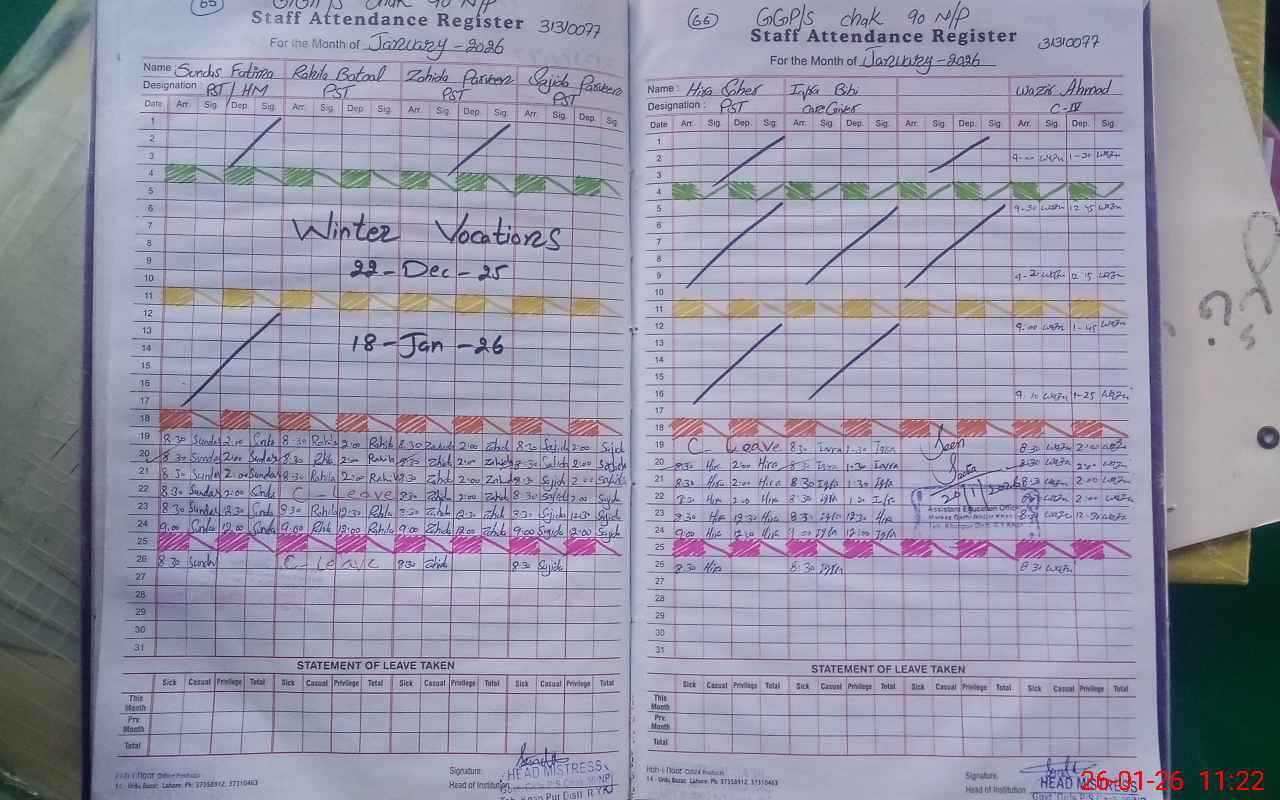 65 GGP/S chak 90 N/P
Staff Attendance Register 31310077
For the Month of January-2026
Name Sundas Fatima Rahila Batool Zahida Parveen Sajida Parveen
Designation PST/HM PST PST PST
Date Arr. Sig. Dep. Sig. Arr. Sig. Dep. Sig. Arr. Sig. Dep. Sig. Arr. Sig. Dep. Sig.
1
2
3
4
5
6
7 Winter Vocations
8
9 22-Dec-25
10
11
12
13
14 18-Jan-26
15
16
17
18
19 8:30 Sundas 2:00 Sundas 8:30 Rahila 2:00 Rahila 8:30 Zahida 2:00 Zahid 8:30 Sajida 2:00 Sajida
20 8:30 Sundas 2:00 Sundas 8:30 Rahila 2:00 Rahila 8:30 Zahid 2:00 Zahida 8:30 Sajida 2:00 Sajida
21 8:30 Sundas 2:00 Sundas 8:30 Rahila 2:00 Rahila 8:30 Zahid 2:00 Zahida 8:30 Sajida 2:00 Sajida
22 8:30 Sundas 2:00 Sundas C-Leave 8:30 Zahid 2:00 Zahid 8:30 Sajida 2:00 Sajida
23 8:30 Sundas 12:30 Sundas 8:30 Rahila 12:30 Rahila 8:30 Zahid 12:30 Zahid 8:30 Sajida 12:30 Sajida
24 9:00 Sundas 12:00 Sundas 9:00 Rahila 12:00 Rahila 9:00 Zahid 12:00 Zahid 9:00 Sajida 12:00 Sajida
25
26 8:30 Sundas C-Leave 8:30 Zahid 8:30 Sajida
27
28
29
30
31
STATEMENT OF LEAVE TAKEN
Sick Casual Privilege Total Sick Casual Privilege Total Sick Casual Privilege Total Sick Casual Privilege Total
This Month
Prv. Month
Total
Office Products
14 - Urdu Bazar, Lahore. Ph: 37358912, 37310463
Signature:
Head of Institution
HEAD MISTRESS
66 GGP/S chak 90 N/P
Staff Attendance Register 31310077
For the Month of January-2026
Name: Hira Saher Iqra Bibi Wazir Ahmad
Designation: PST CareGiver C-IV
Date Arr. Sig. Dep. Sig. Arr. Sig. Dep. Sig. Arr. Sig. Dep. Sig. Arr. Sig. Dep. Sig.
1
2 9-00 Wazir 1-30 Wazir
3
4
5 9-30 Wazir 12-45 Wazir
6
7
8
9 9-2 Wazir 12-15 Wazir
10
11
12 9:00 Wazir 1-45 Wazir
13
14
15
16 9-10 Wazir 1-25 Wazir
17
18
19 C-Leave 8:30 Iqra 1:30 Iqra Seen 8:30 Wazir 2:00 Wazir
20 8:30 Hira 2:00 Hira 8:30 Iqra 1:30 Iqra 8:30 Wazir 2:00 Wazir
21 8:30 Hira 2:00 Hira 8:30 Iqra 1:30 Iqra 8:30 Wazir 2:00 Wazir
22 8:30 Hira 2:00 Hira 8:30 Iqra 1:30 Iqra 20/1/2026 Wazir 2:00 Wazir
Assistant Education Officer
23 8:30 Hira 12:30 Hira 8:30 Iqra 12:30 Wazir 12-30 Wazir
24 9:00 Hira 12:00 Hira 9:00 Iqra 12:00 Iqra
25
26 8:30 Hira 8:30 Iqra 8:30 Wazir
27
28
29
30
31
STATEMENT OF LEAVE TAKEN
Sick Casual Privilege Total Sick Casual Privilege Total Sick Casual Privilege Total Sick Casual Privilege Total
This Month
Prv. Month
Total
Office Products
14 - Urdu Bazar, Lahore. Ph: 37358912, 37310463
Signature:
Head of Institution
HEAD MISTRESS
26-01-26 11:22